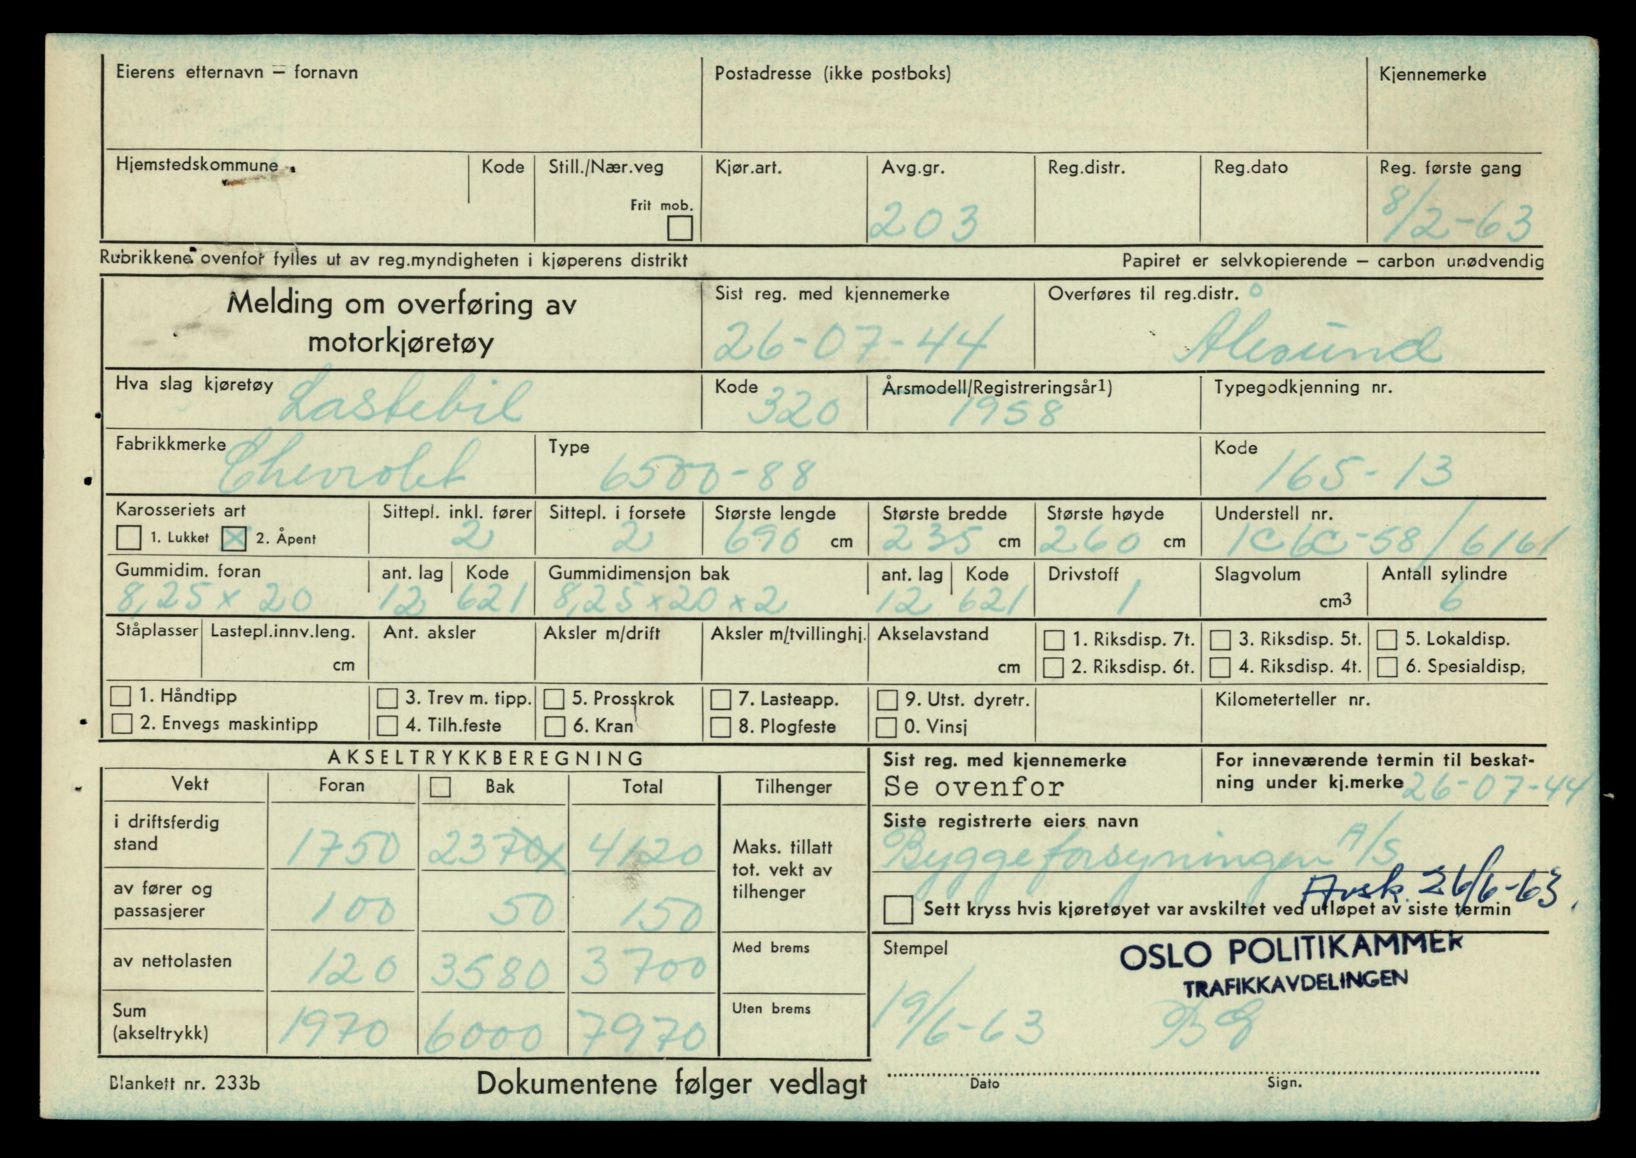 Eierens etternavn – fornavn Postadresse (ikke postboks) Kjennemerke
Hjemstedskommune Kode Still./Nær.veg Kjør.art. Avg.gr. Reg.distr. Reg.dato Reg. første gang
Frit mob. 203 8/2-63
Rubrikkene ovenfor fylles ut av reg.myndigheten i kjøperens distrikt Papiret er selvkopierende – carbon unødvendig
Melding om overføring av
motorkjøretøy
Sist reg. med kjennemerke Overføres til reg.distr.
26-07-44 Ålesund
Hva slag kjøretøy Kode Årsmodell/Registreringsår1) Typegodkjenning nr.
Lastebil 320 1958
Fabrikkmerke Type Kode
Chevrolet 6500-88 165-13
Karosseriets art Sittepl. inkl. fører Sittepl. i forsete Største lengde Største bredde Største høyde Understell nr.
1. Lukket X 2. Åpent 2 2 690 cm 235 cm 260 cm 1C6C-58/6161
Gummidim. foran ant. lag Kode Gummidimensjon bak ant. lag Kode Drivstoff Slagvolum Antall sylindre
8,25 x 20 12 621 8,25x20x2 12 621 1 cm3 6
Ståplasser Lastepl.innv.leng. Ant. aksler Aksler m/drift Aksler m/tvillinghj. Akselavstand 1. Riksdisp. 7t. 3. Riksdisp. 5t. 5. Lokaldisp.
cm cm 2. Riksdisp. 6t. 4. Riksdisp. 4t. 6. Spesialdisp.
1. Håndtipp 3. Trev m. tipp. 5. Prosskrok 7. Lasteapp. 9. Utst. dyretr. Kilometerteller nr.
2. Envegs maskintipp 4. Tilh.feste 6. Kran 8. Plogfeste 0. Vinsj
AKSELTRYKKBEREGNING
Vekt Foran Bak Total Tilhenger
i driftsferdig
stand 1750 2370x 4120
Maks. tillatt
tot. vekt av
tilhenger
av fører og
passasjerer 100 50 150
av nettolasten 120 3580 3700 Med brems
Sum
(akseltrykk) 1970 6000 7970 Uten brems
Sist reg. med kjennemerke
Se ovenfor
For inneværende termin til beskat-
ning under kj.merke 26-07-44
Siste registrerte eiers navn
Byggeforsyningen A/S
Avsk. 26/6-63.
Sett kryss hvis kjøretøyet var avskiltet ved utløpet av siste termin
Stempel
OSLO POLITIKAMMER
TRAFIKKAVDELINGEN
19/6-63 BG
Dato Sign.
Blankett nr. 233b Dokumentene følger vedlagt